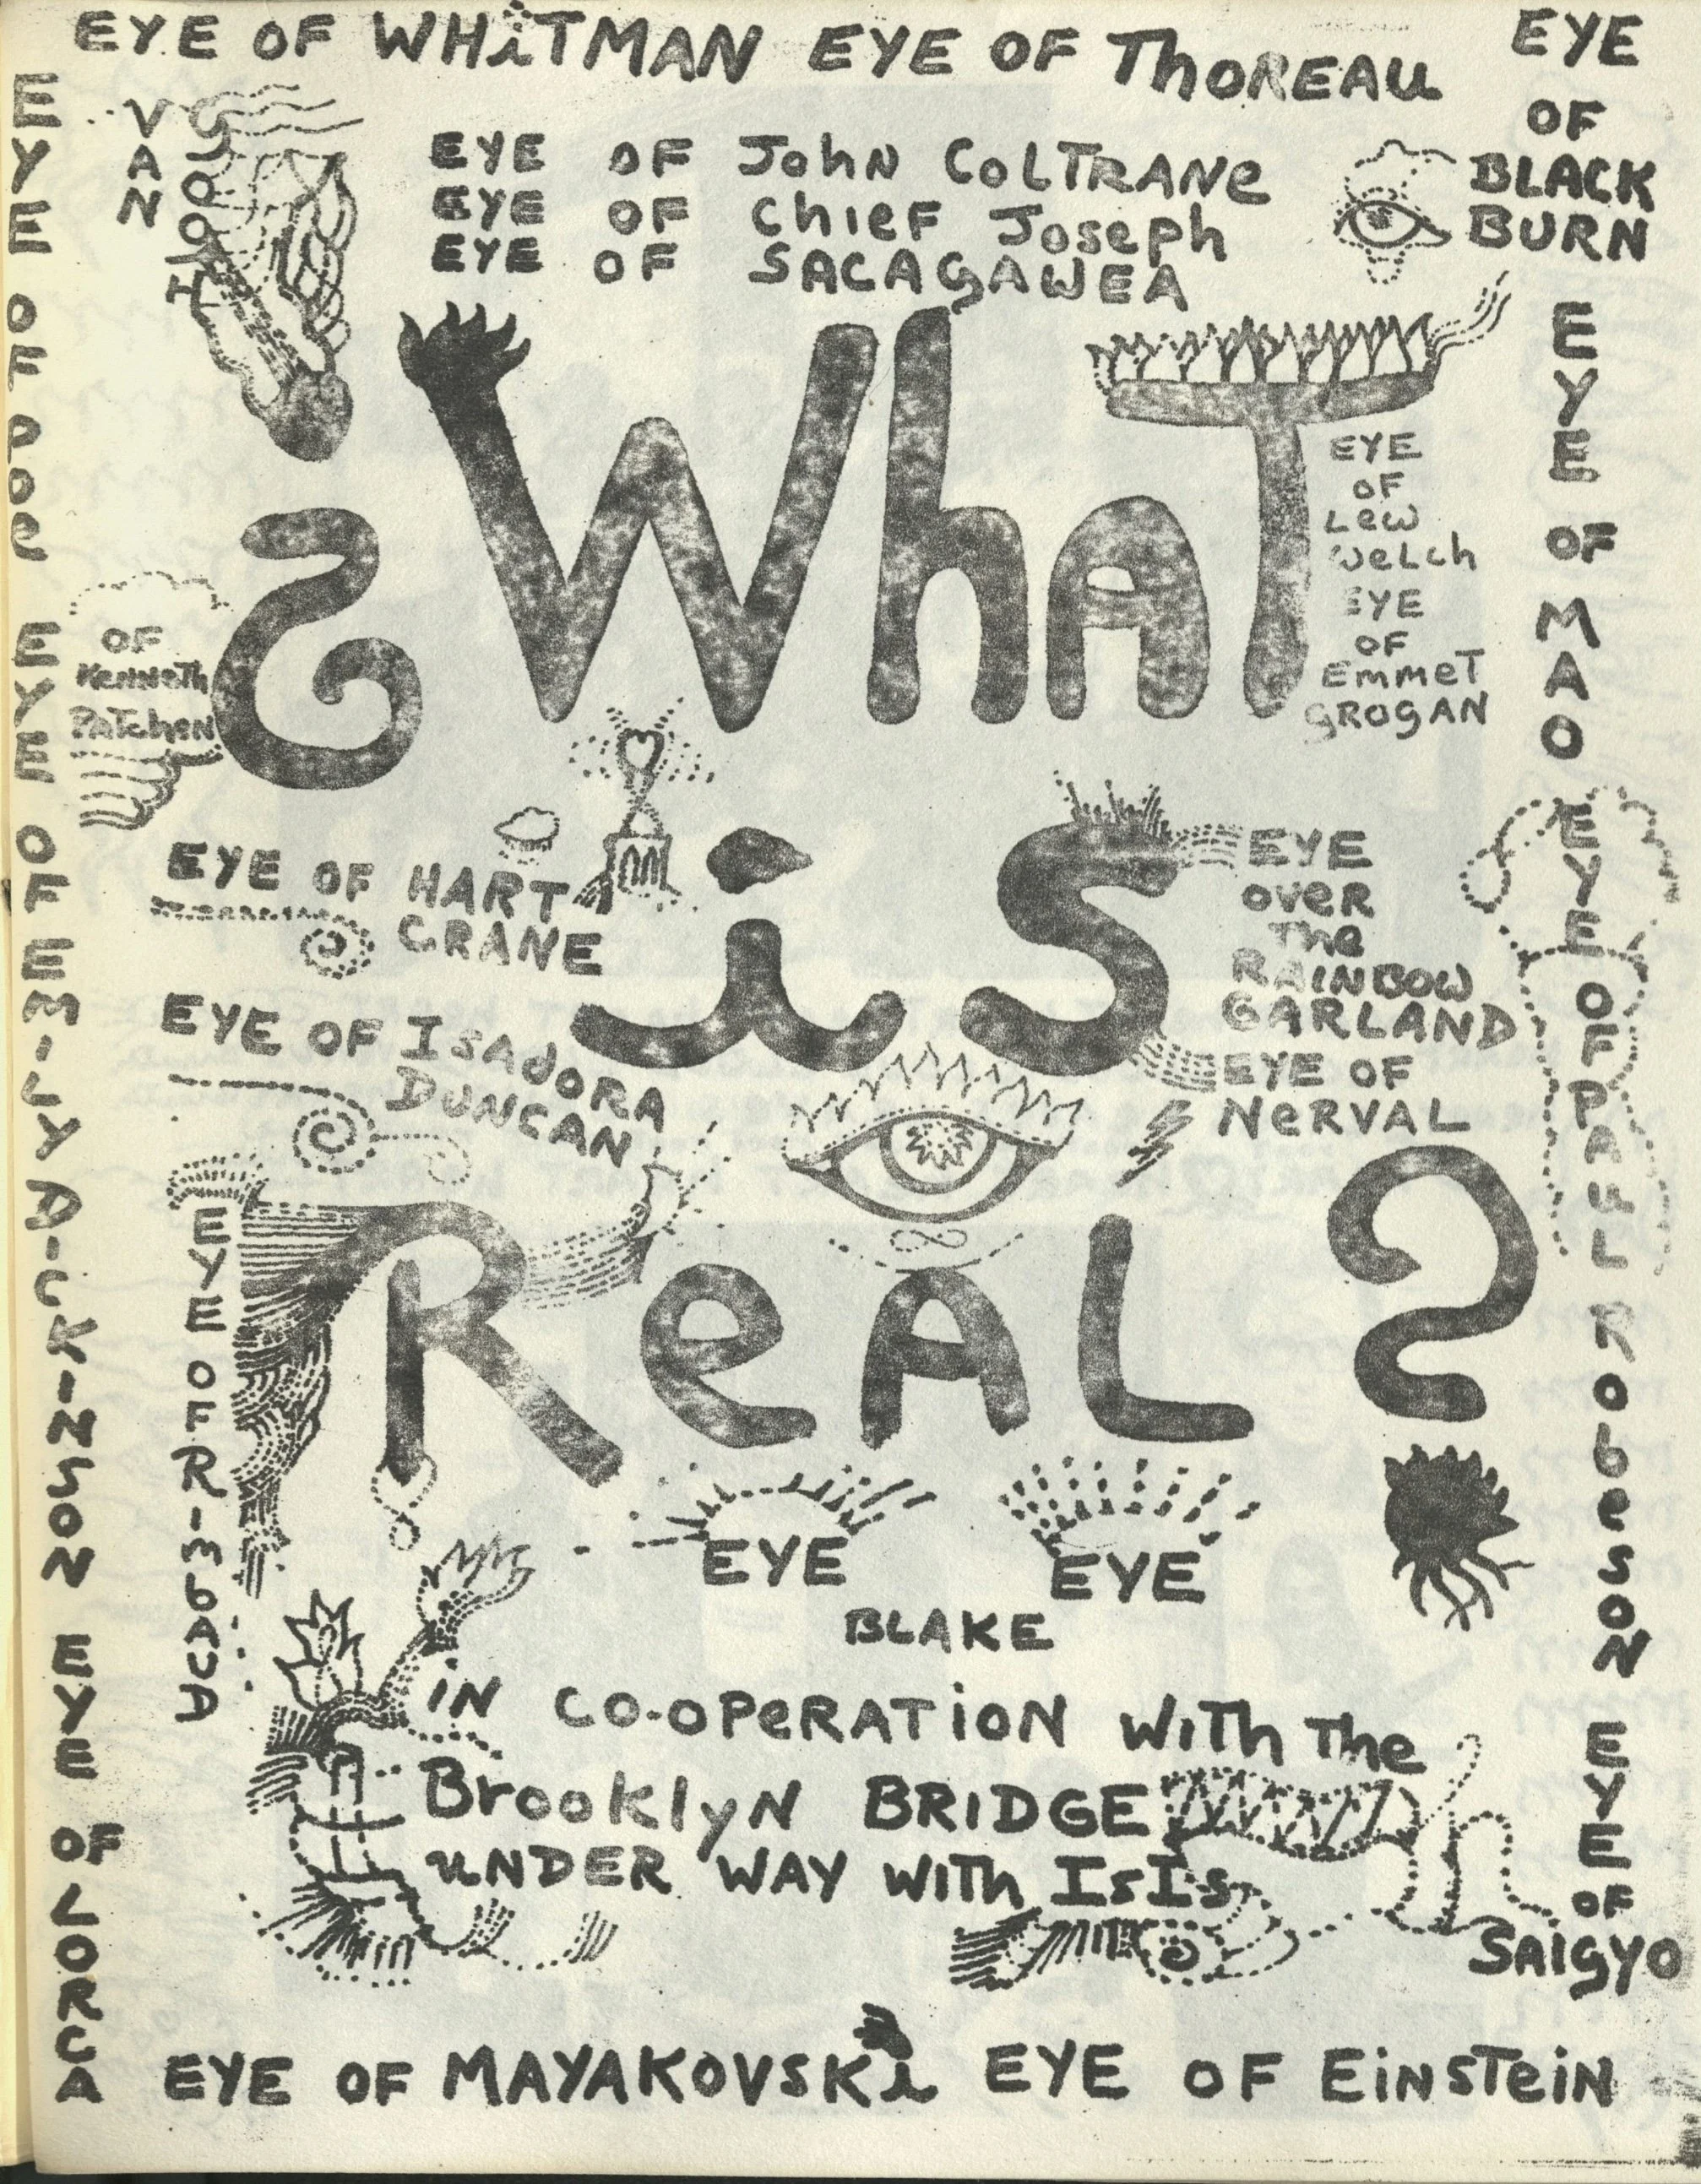 EYE OF WHiTMAN EYE OF ThOREAU
EYE
OF
BLACK
BURN
EYE OF POE EYE OF EMILY DICKINSON EYE OF LORCA
VAN GOGH
EYE OF John COLTRANe
EYE OF ChIEF Joseph
EYE OF SACAGAWEA
¿WhAT
EYE
OF
Lew
WeLch
EYE
OF
EmmeT
GROGAN
EYE OF MAO
OF
KenneTh
PATchen
EYE OF HART
CRANE
EYE OF ISAdORA
DUNCAN
iS
EYE
OVeR
The
RAINBOW
GARLAND
EYE OF
NeRVAL
EYE OF PAUL RObeSON EYE
OF
SAIGYO
EYE OF RIMbAUD
ReAL?
EYE EYE
BLAKE
iN CO-OPeRATiON WiTh The
BrooklyN BRIDGE
uNDER WAY WiTh ISIS
EYE OF MAYAKOVSKi EYE OF EiNSTeiN